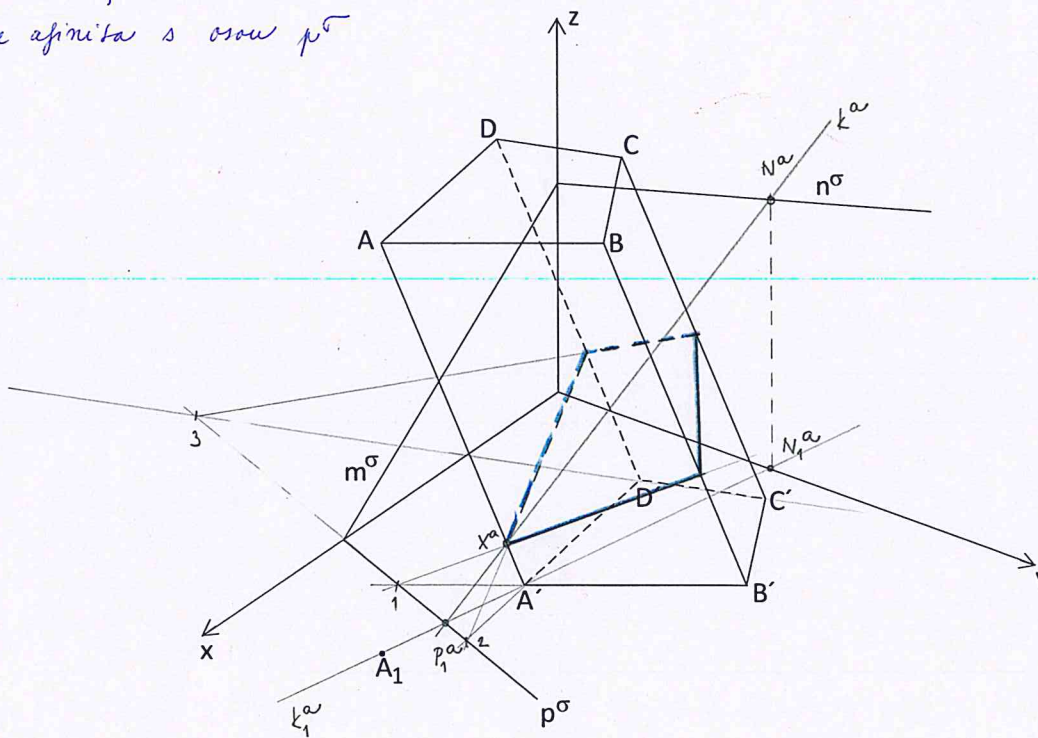 afinita s osou p^σ
z
k^a
D
C
N^a
n^σ
A
B
3
m^σ
N_1^a
D
C´
X^a
1
A´
B´
x
p_1^a
2
A_1
k_1^a
p^σ